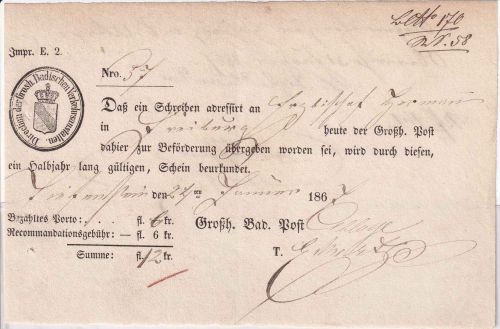 No 170
58
Impr. E. 2.
Nro. 57
Direction der Grosh. Badischen Verkehrsanstalten.
Daß ein Schreiben adressirt an Herman
in Freiburg heute der Großh. Post
dahier zur Beförderung übergeben worden sei, wird durch diesen,
ein Halbjahr lang gültigen, Schein beurkundet.
Tiefenstein den 27ten Januar 1867
Bezahltes Porto: . . fl. 6 kr. Großh. Bad. Post
Recommandationsgebühr: — fl. 6 kr.
Summe: fl. 12 kr. T.